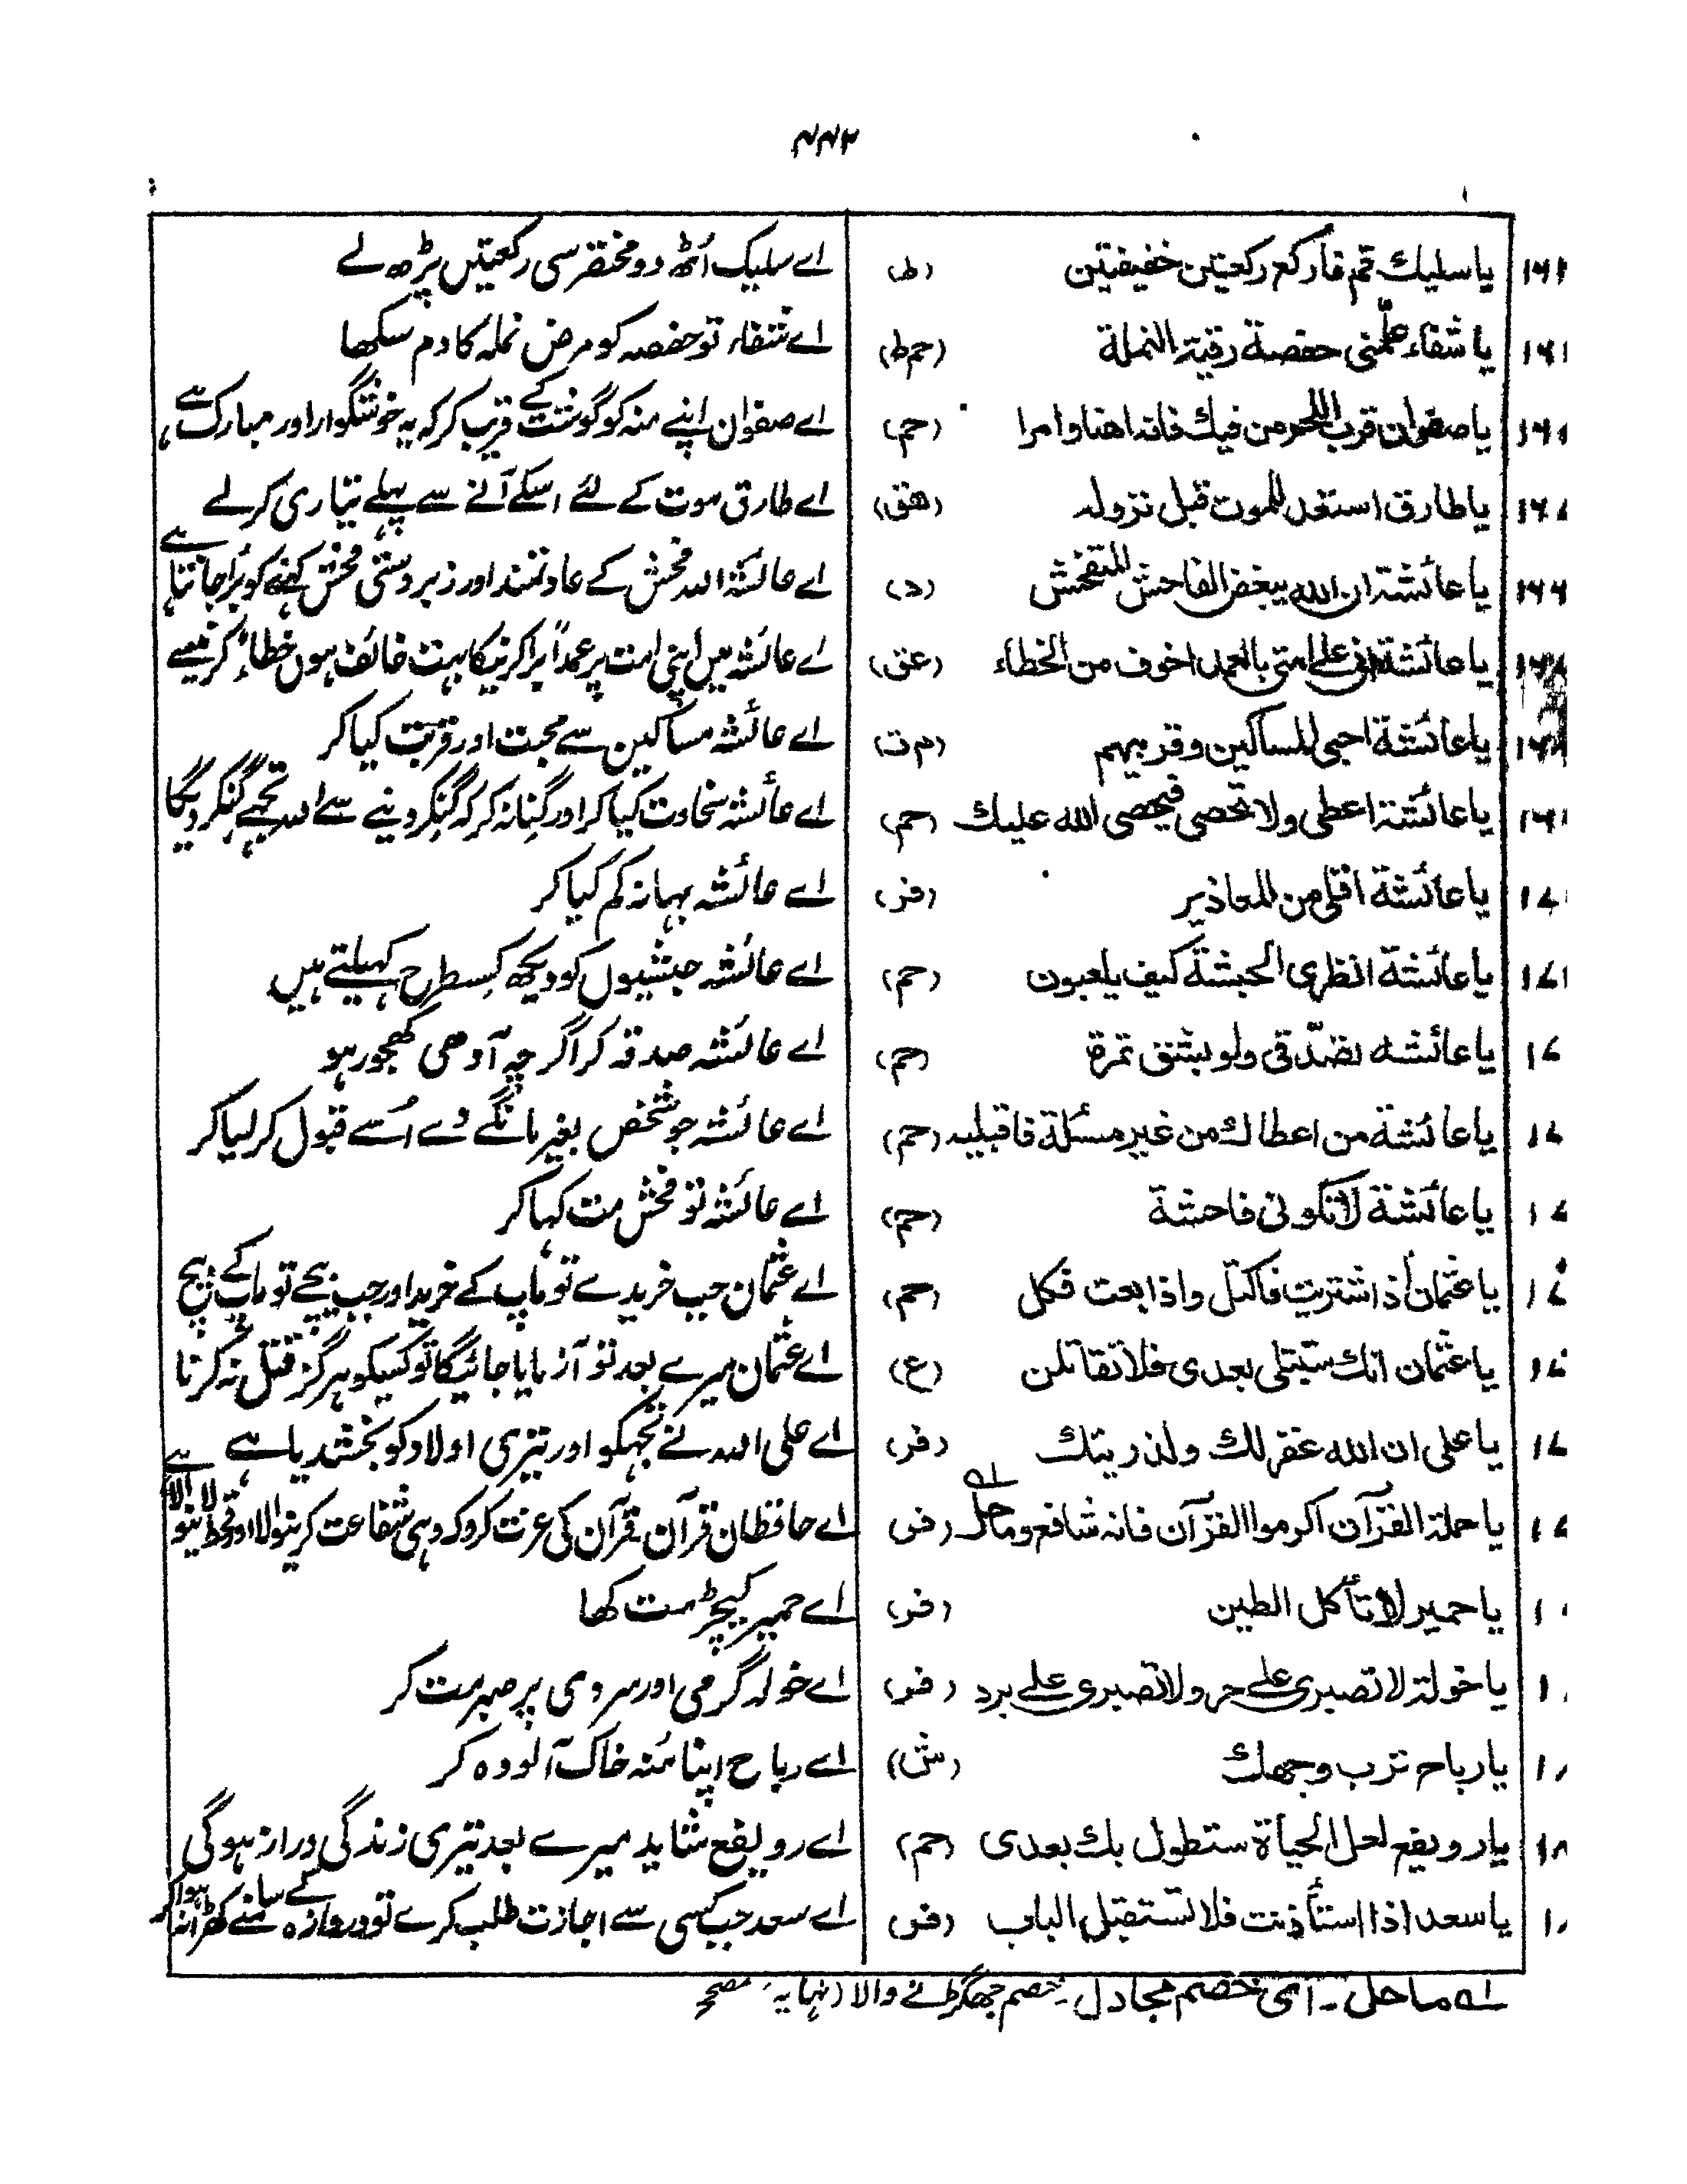 ۴۴۲
یاسلیك قم فاركع ركعتین خفیفتین (ط) اے سلیک اُٹھ دو مختصر سی رکعتیں پڑھ لے
یا شفاء علّمی حفصة رقیة النملة (حم ط) اے شفاء تو حفصہ کو مرض نملہ کا دم سکھا
یا صفوان قرب اللحم من فیك فانه اهنا وامرا (حم) اے صفوان اپنے منہ کو گوشت کے قریب کر کہ یہ خوشگوار اور مبارک ہے
یا طارق استعد للموت قبل نزوله (هق) اے طارق موت کے لئے اسکے آنے سے پہلے تیاری کر لے
یا عائشة ان الله یبغض الفاحش المتفحش (د) اے عائشہ اللہ فحش کے عادتمند اور زبردستی فحش کہنے کو بُرا جانتا ہے
یا عائشة انی علی امتی بالعمد اخوف من الخطاء (عق) اے عائشہ میں اپنی امت پر عمداً بُرا کرنیکا بہت خائف ہوں خطاءً کرنیسے
یا عائشة احبی المساکین وقربیهم (م ت) اے عائشہ مساکین سے محبت اور قربت کیا کر
یا عائشة اعطی ولا تحصی فیحصی الله علیك (حم) اے عائشہ سخاوت کیا کر اور گِنا نہ کر کہ گِنکر دینے سے اللہ تجھے گِنکر دیگا
۱۷ یا عائشة اقلی من المعاذیر (فر) اے عائشہ بہانہ کم کیا کر
۱۷۱ یا عائشة انظری الحبشة کیف یلعبون (حم) اے عائشہ حبشیوں کو دیکھ کِسطرح کھیلتے ہیں
۱۷ یا عائشه تصدّقی ولو بشق تمرة (حم) اے عائشہ صدقہ کر اگرچہ آدھی کھجور ہو
۱۷ یا عائشة من اعطاك من غیر مسئلة فاقبلیه (حم) اے عائشہ جو شخص بغیر مانگے دے اُسے قبول کر لیا کر
۱۷ یا عائشة لا تکونی فاحشة (حم) اے عائشہ تو فحش مت کہا کر
۱۷ یا عثمان اذا اشتریت فاکتل واذا بعت فکل (حم) اے عثمان جب خریدے تو ماپ کے خرید اور جب بیچے تو ماپ کے بیچ
۱۷ یا عثمان انك ستبتلی بعدی فلا تقاتلن (ع) اے عثمان میرے بعد تو آزمایا جائیگا تو کسیکو ہرگز قتل نہ کرنا
۱۷ یا علی ان الله غفر لك ولذریتك (فر) اے علی اللہ نے تجھکو اور تیری اولاد کو بخشدیا ہے
۱۷ یا حملة القرآن اکرموا القرآن فانه شافع وماحل لہ (فر) اے حافظان قرآن قرآن کی عزت کرو کہ وہی شفاعت کرنیوالا اور
یا حمیر لا تأکل الطین (فر) اے حمیر کیچڑ مت کھا
یا خولة لا تصبری علی حر ولا تصبری علی برد (فر) اے خولہ گرمی اور سردی پر صبر مت کر
یا رباح ترب وجهك (ش) اے رباح اپنا مُنہ خاک آلودہ کر
یا رویفع لعل الحیاة ستطول بك بعدی (حم) اے رویفع شاید میرے بعد تیری زندگی دراز ہوگی
یا سعد اذا استأذنت فلا تستقبل الباب (فر) اے سعد جب کسی سے اجازت طلب کرے تو دروازہ کے سامنے کھڑا نہ ہوا کر
لہ ماحل ۔ ای خصم مجادل ۔ خصم جھگڑنے والا (نہایہ) مصحح